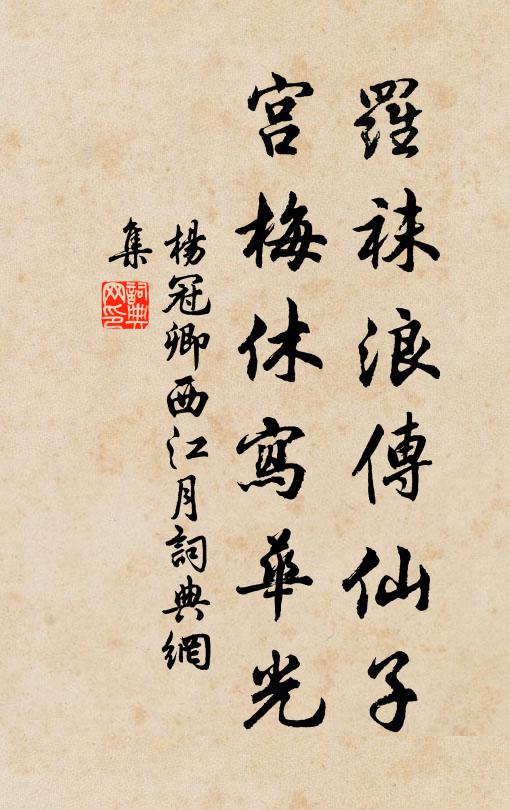 羅袜浪傳仙子
宮梅休寫華光
楊冠卿西江月詞典網
集
詞典網印